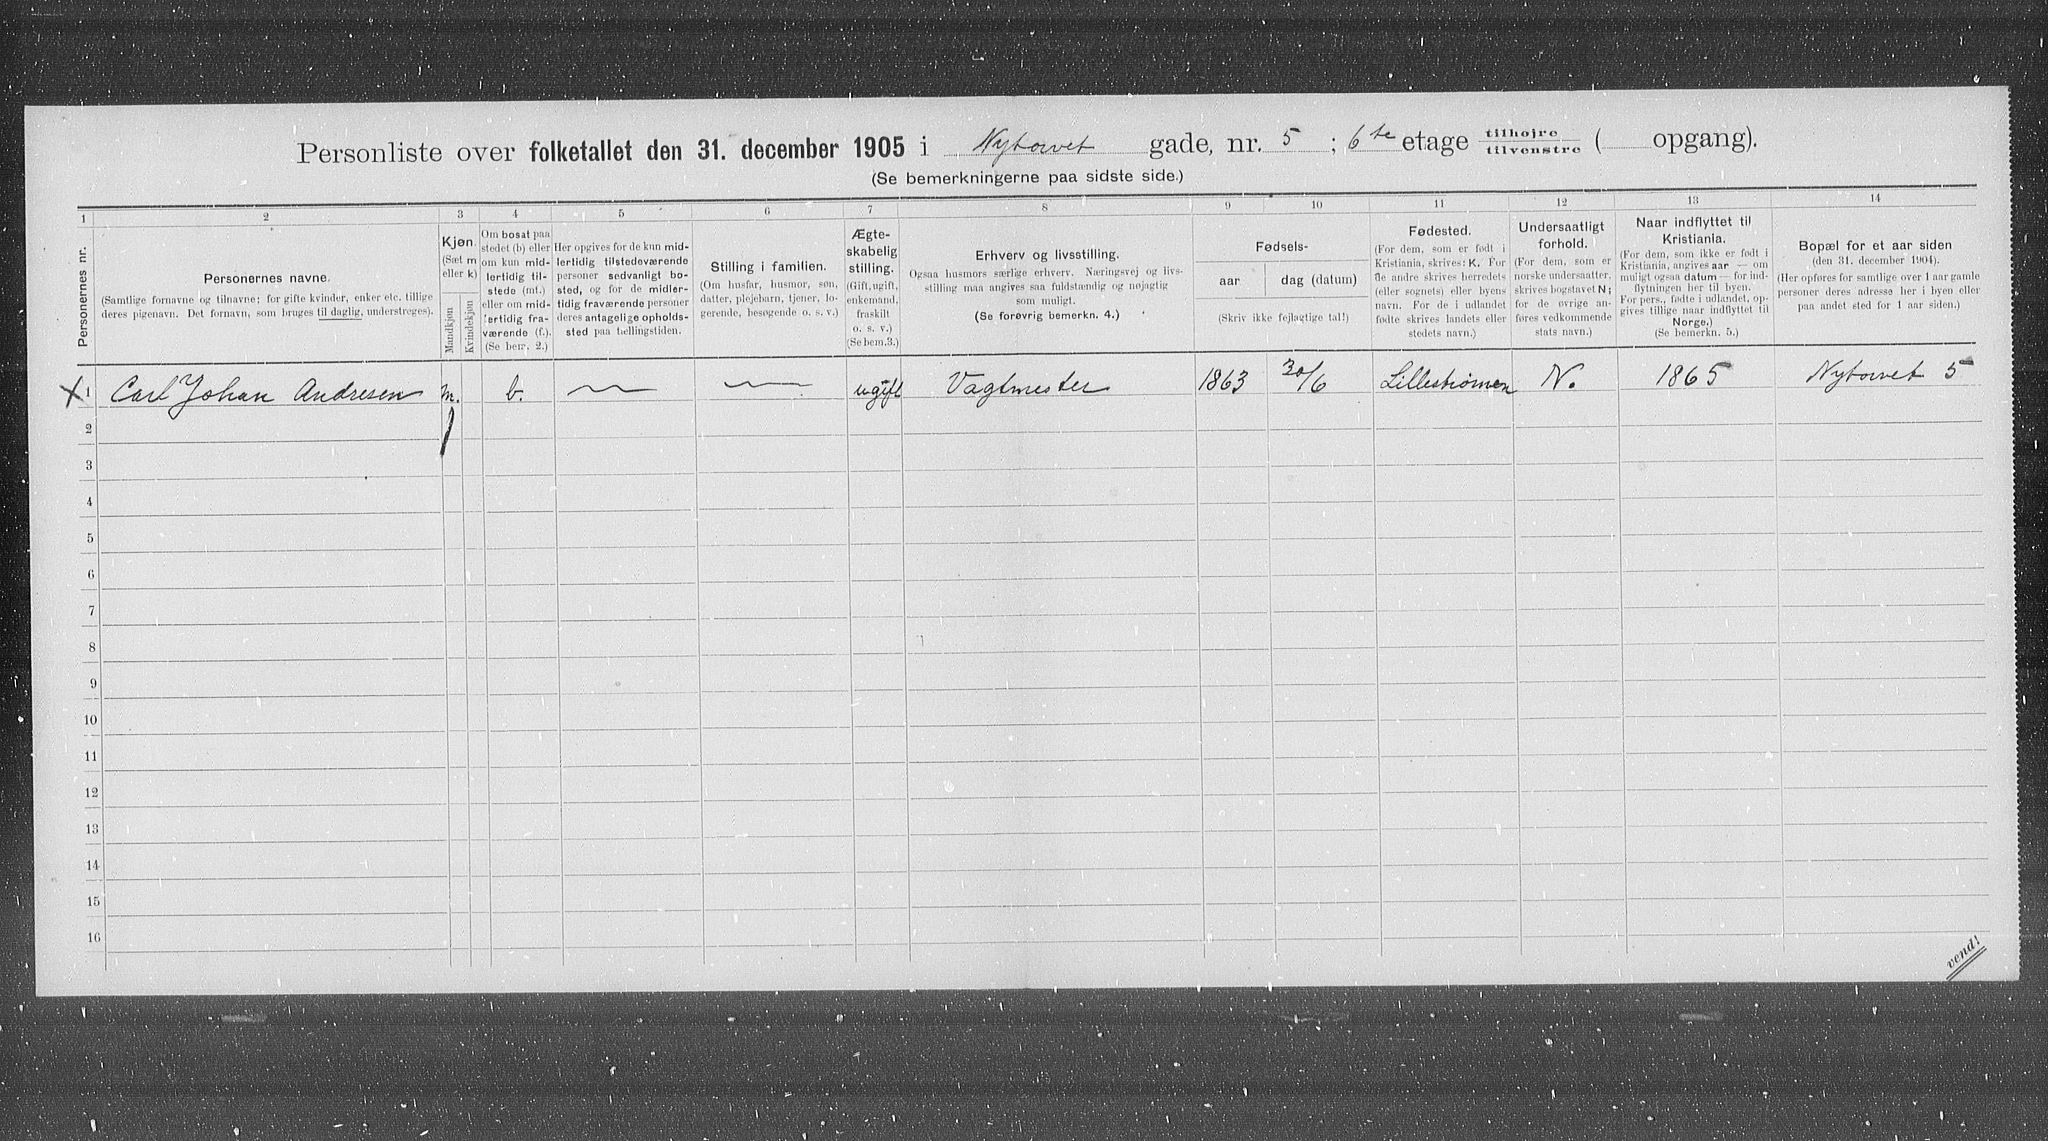 Personliste over folketallet den 31. december 1905 i Nytorvet gade, nr. 5 ; 6te etage tilhøjre tilvenstre ( opgang).
(Se bemerkningerne paa sidste side.)
1 2 3 4 5 6 7 8 9 10 11 12 13 14
Personernes nr.
Personernes navne.
(Samtlige fornavne og tilnavne; for gifte kvinder, enker etc. tillige
deres pigenavn. Det fornavn, som bruges til daglig, understreges).
Kjøn.
(Sæt m
eller k)
Mandkjøn
Kvindekjøn
Om bosat paa
stedet (b) eller
om kun mid-
lertidig til-
stede (mt.)
eller om mid-
lertidig fra-
værende (f.).
(Se bem. 2.)
Her opgives for de kun mid-
lertidig tilstedeværende
personer sedvanligt bo-
sted, og for de midler-
tidig fraværende personer
deres antagelige opholds-
sted paa tællingstiden.
Stilling i familien.
(Om husfar, husmor, søn,
datter, plejebarn, tjener, lo-
gerende, besøgende o. s. v.)
Ægte-
skabelig
stilling.
(Gift, ugift,
enkemand,
fraskilt
o. s. v.)
(Se bem.3.)
Erhverv og livsstilling.
Ogsaa husmors særlige erhverv. Næringsvej og livs-
stilling maa angives saa fuldstændig og nøjagtig
som muligt.
(Se forøvrig bemerkn. 4.)
Fødsels-
aar
dag (datum)
(Skriv ikke fejlagtige tal!)
Fødested.
(For dem, som er født i
Kristiania, skrives: K. For
de andre skrives herredets
(eller sognets) eller byens
navn. For de i udlandet
fødte skrives landets eller
stedets navn.)
Undersaatligt
forhold.
(For dem, som er
norske undersaatter,
skrives bogstavet N;
for de øvrige an-
føres vedkommende
stats navn.)
Naar indflyttet til
Kristiania.
(For dem, som ikke er født i
Kristiania, angives aar — om
muligt ogsaa datum — for ind-
flytningen her til byen.
For pers., fødte i udlandet, op-
gives tillige naar indflyttet til
Norge.)
(Se bemerkn. 5.)
Bopæl for et aar siden
(den 31. december 1904).
(Her opføres for samtlige over 1 aar gamle
personer deres adresse her i byen eller
paa andet sted for 1 aar siden.)
X 1 Carl Johan Andresen m. b. — — ugift Vagtmester 1863 30/6 Lillestrømmen N. 1865 Nytorvet 5
2
3
4
5
6
7
8
9
10
11
12
13
14
15
16
vend!